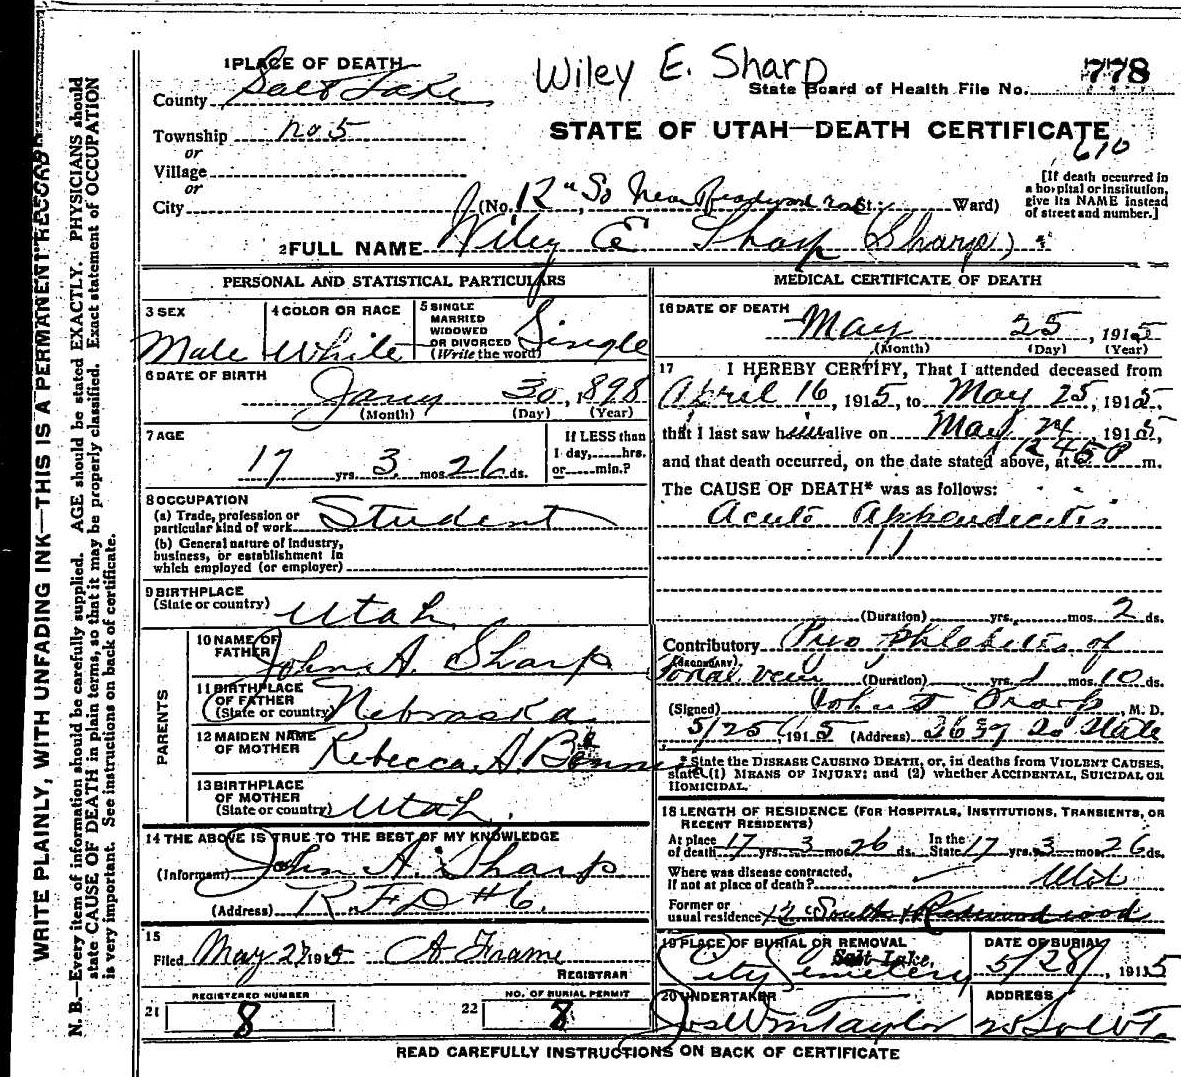 Wiley E. Sharp
1 PLACE OF DEATH
778
State Board of Health File No.
County Salt Lake
Township No. 5
STATE OF UTAH—DEATH CERTIFICATE
610
or
Village
or
City (No. 12" So Near Redwood road St.; Ward)
[If death occurred in a hospital or institution, give its NAME instead of street and number.]
2 FULL NAME Wiley E Sharp (Sharp)
PERSONAL AND STATISTICAL PARTICULARS
3 SEX Male
4 COLOR OR RACE White
5 SINGLE MARRIED WIDOWED OR DIVORCED (Write the word) Single
6 DATE OF BIRTH
Jany 30, 1898
(Month) (Day) (Year)
7 AGE
17 yrs. 3 mos. 26 ds.
If LESS than
1 day, hrs.
or min.?
8 OCCUPATION
(a) Trade, profession or
particular kind of work Student
(b) General nature of industry,
business, or establishment in
which employed (or employer)
9 BIRTHPLACE
(State or country) Utah
PARENTS
10 NAME OF
FATHER John A. Sharp
11 BIRTHPLACE
OF FATHER
(State or country) Nebraska
12 MAIDEN NAME
OF MOTHER Rebecca A.
13 BIRTHPLACE
OF MOTHER
(State or country) Utah
14 THE ABOVE IS TRUE TO THE BEST OF MY KNOWLEDGE
(Informant) John A. Sharp
(Address) R.F.D #6.
15
Filed May 27 1915 A Frame
REGISTRAR
21 REGISTERED NUMBER 8
22 NO. OF BURIAL PERMIT 8
MEDICAL CERTIFICATE OF DEATH
16 DATE OF DEATH
May 25, 1915
(Month) (Day) (Year)
17 I HEREBY CERTIFY, That I attended deceased from
April 16, 1915, to May 25, 1915,
that I last saw him alive on May 24, 1915,
and that death occurred, on the date stated above, at 12 45 P m.
The CAUSE OF DEATH* was as follows:
Acute Appendicitis
(Duration) yrs. mos. 2 ds.
Contributory Pyo phlebitis of
(SECONDARY)
Portal vein (Duration) yrs. 1 mos. 10 ds.
(Signed) M. D.
5/25, 1915 (Address) So State
* State the DISEASE CAUSING DEATH, or, in deaths from VIOLENT CAUSES,
state (1) MEANS OF INJURY; and (2) whether ACCIDENTAL, SUICIDAL OR
HOMICIDAL.
18 LENGTH OF RESIDENCE (FOR HOSPITALS, INSTITUTIONS, TRANSIENTS, OR
RECENT RESIDENTS)
At place
of death 17 yrs. 3 mos. 26 ds. In the State 17 yrs. 3 mos. 26 ds.
Where was disease contracted,
If not at place of death?
Former or
usual residence 12 South & Redwood road
19 PLACE OF BURIAL OR REMOVAL
Salt Lake,
City Cemetery
DATE OF BURIAL
5/28/, 1915
20 UNDERTAKER
Jos Wm Taylor
ADDRESS
READ CAREFULLY INSTRUCTIONS ON BACK OF CERTIFICATE
WRITE PLAINLY, WITH UNFADING INK—THIS IS A PERMANENT RECORD
N. B.—Every item of information should be carefully supplied. AGE should be stated EXACTLY. PHYSICIANS should
state CAUSE OF DEATH in plain terms, so that it may be properly classified. Exact statement of OCCUPATION
is very important. See instructions on back of certificate.